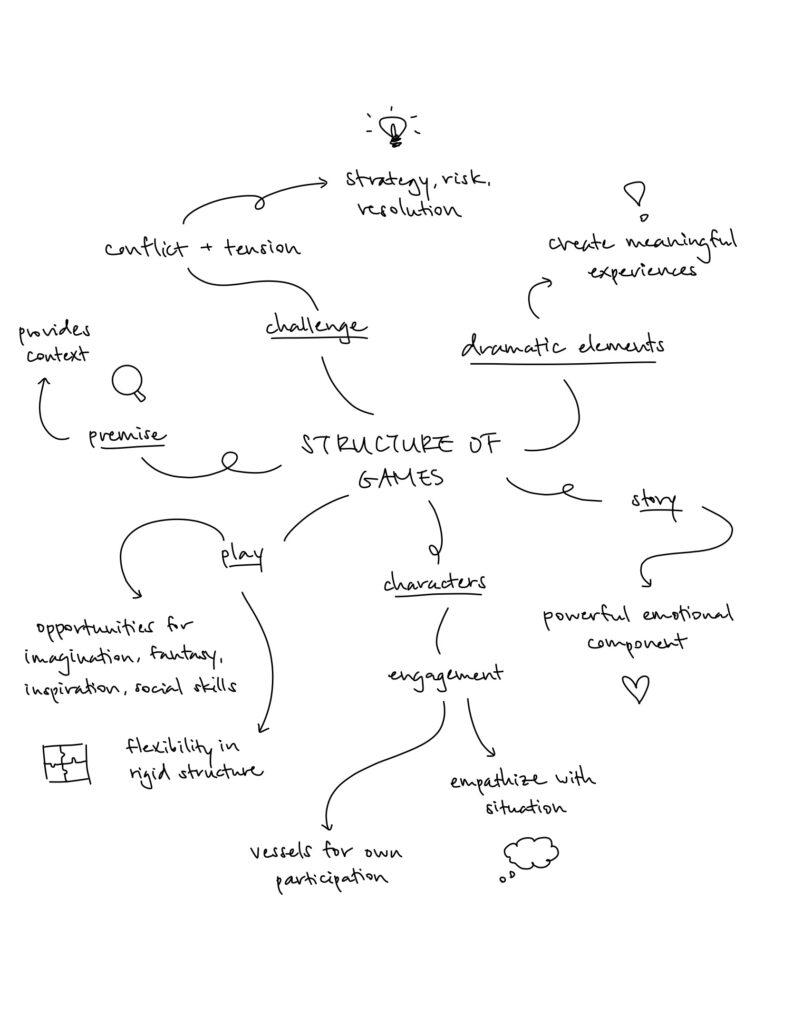 strategy, risk,
resolution
conflict + tension
challenge
create meaningful
experiences
dramatic elements
provides
context
premise
STRUCTURE OF
GAMES
story
play
characters
powerful emotional
component
opportunities for
imagination, fantasy,
inspiration, social skills
engagement
flexibility in
rigid structure
empathize with
situation
vessels for own
participation